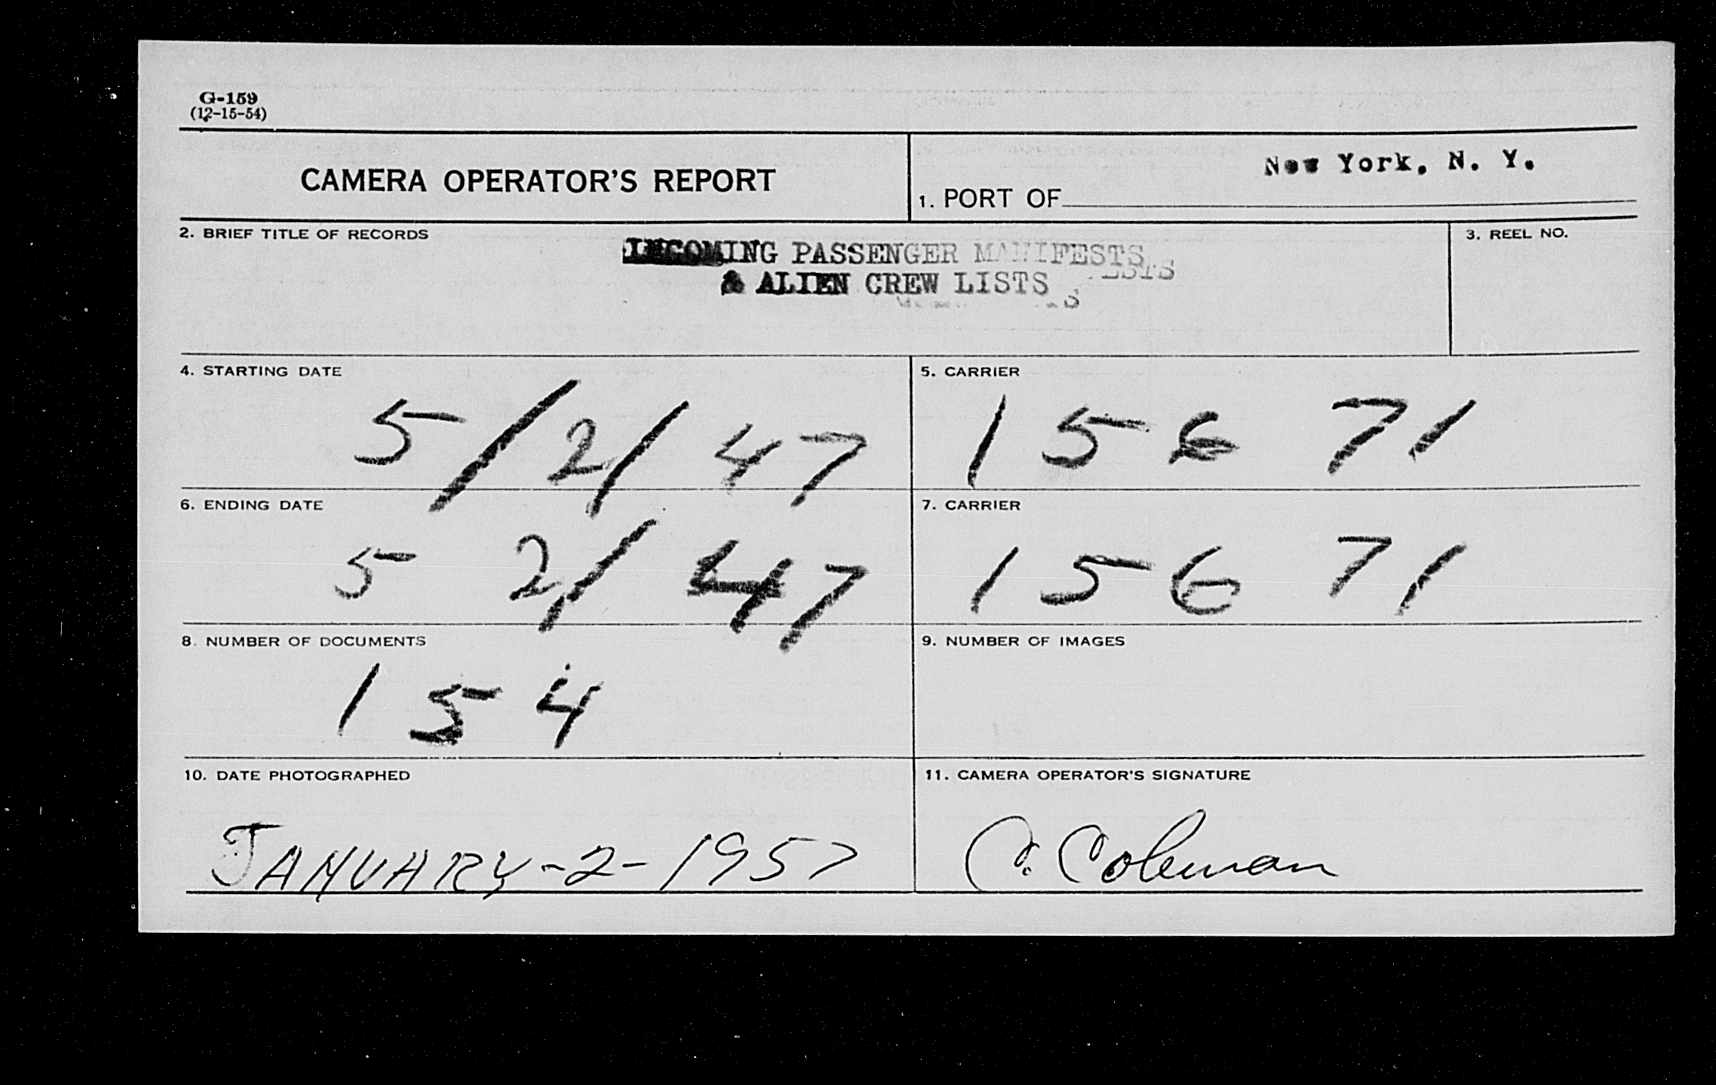 G-159
(12-15-54)
CAMERA OPERATOR'S REPORT
New York, N. Y.
1. PORT OF
2. BRIEF TITLE OF RECORDS
INCOMING PASSENGER MANIFESTS
& ALIEN CREW LISTS
3. REEL NO.
4. STARTING DATE
5/2/47
5. CARRIER
15671
6. ENDING DATE
5 2/47
7. CARRIER
15671
8. NUMBER OF DOCUMENTS
154
9. NUMBER OF IMAGES
10. DATE PHOTOGRAPHED
JANUARY-2-1957
11. CAMERA OPERATOR'S SIGNATURE
C. Coleman